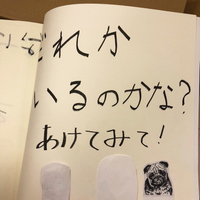 どれか
いるのかな?
あけてみて!